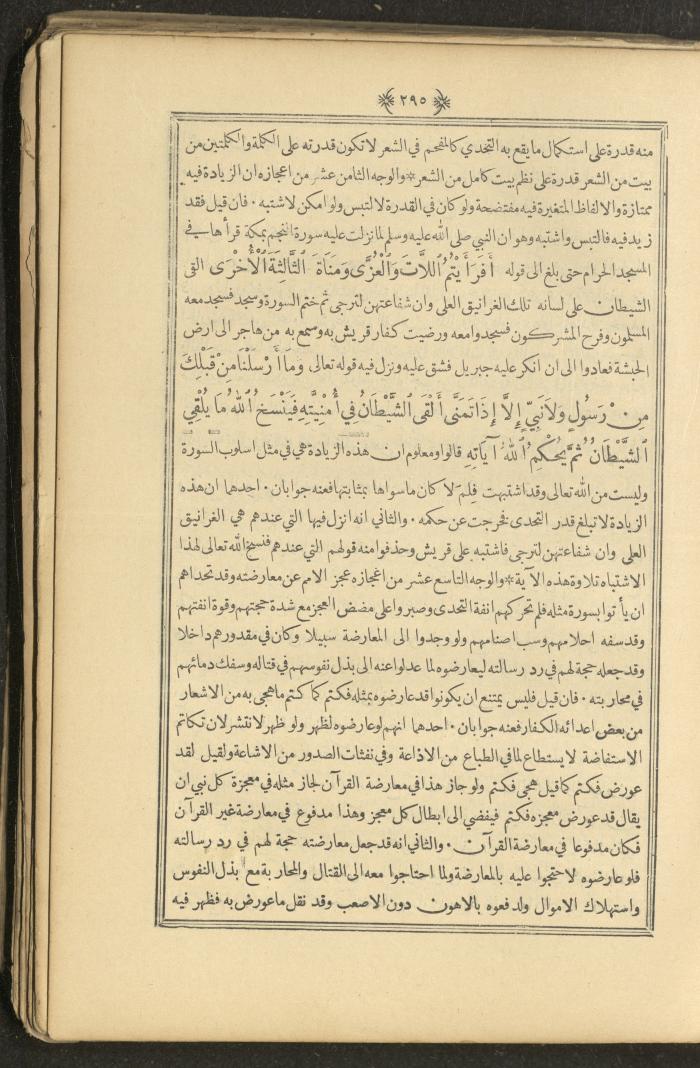 ٢٩٥
منه قدرة على استكمال ما يقع به التحدي كالمفحم في الشعر لا تكون قدرته على الكلمة والكلمتين من
بيت من الشعر قدرة على نظم بيت كامل من الشعر * والوجه الثامن عشر من اعجازه ان الزيادة فيه
ممتازة والالفاظ المتغيرة فيه مفتضحة ولو كان في القدرة لالتبس ولو امكن لاشتبه ٠ فان قيل فقد
زيد فيه فالتبس واشتبه وهو ان النبي صلى الله عليه وسلم لما نزلت عليه سورة النجم بمكة قرأها في
المسجد الحرام حتى بلغ الى قوله أَفَرَأَيْتُمُ ٱللَّاتَ وَٱلْعُزَّى وَمَنَاةَ ٱلثَّالِثَةَ ٱلْأُخْرَى القى
الشيطان على لسانه تلك الغرانيق العلى وان شفاعتهن لترجى ثم ختم السورة وسجد فسجد معه
المسلمون وفرح المشركون فسجدوا معه ورضيت كفار قريش به وسمع به من هاجر الى ارض
الحبشة فعادوا الى ان انكر عليه جبريل فشق عليه ونزل فيه قوله تعالى وَمَا أَرْسَلْنَا مِنْ قَبْلِكَ
مِنْ رَسُولٍ وَلَا نَبِيٍّ إِلَّا إِذَا تَمَنَّى أَلْقَى ٱلشَّيْطَانُ فِي أُمْنِيَّتِهِ فَيَنْسَخُ ٱللهُ مَا يُلْقِي
ٱلشَّيْطَانُ ثُمَّ يُحْكِمُ ٱللهُ آيَاتِهِ قالوا ومعلوم ان هذه الزيادة هي في مثل اسلوب السورة
وليست من الله تعالى وقد اشتبهت فلِمَ لا كان ما سواها بمثابتها فعنه جوابان ٠ احدهما ان هذه
الزيادة لا تبلغ قدر التحدى فخرجت عن حكمه ٠ والثاني انه انزل فيها التي عندهم هي الغرانيق
العلى وان شفاعتهن لترجى فاشتبه على قريش وحذفوا منه قولهم التي عندهم فنسخ الله تعالى لهذا
الاشتباه تلاوة هذه الآية * والوجه التاسع عشر من اعجازه عجز الامم عن معارضته وقد تحداهم
ان يأتوا بسورة مثله فلم تحركهم انفة التحدى وصبروا على مضض العجز مع شدة حجتهم وقوة انفتهم
وقد سفه احلامهم وسب اصنامهم ولو وجدوا الى المعارضة سبيلا وكان في مقدورهم داخلا
وقد جعله حجة لهم في رد رسالته ليعارضوه لما عدلوا عنه الى بذل نفوسهم في قتاله وسفك دمائهم
في محاربته ٠ فان قيل فليس يمتنع ان يكونوا قد عارضوه بمثله فكتم كما كتم ما هجى به من الاشعار
من بعض اعدائه الكفار فعنه جوابان ٠ احدهما انهم لو عارضوه لظهر ولو ظهر لانتشر لان تكاتم
الاستفاضة لا يستطاع لما في الطباع من الاذاعة وفي نفثات الصدور من الاشاعة ولقيل لقد
عورض فكتم كما قيل هجى فكتم ولو جاز هذا في معارضة القرآن لجاز مثله في معجزة كل نبي ان
يقال قد عورض معجزه فكتم فيفضي الى ابطال كل معجز وهذا مدفوع في معارضة غير القرآن
فكان مدفوعا في معارضة القرآن ٠ والثاني انه قد جعل معارضته حجة لهم في رد رسالته
فلو عارضوه لاحتجوا عليه بالمعارضة ولما احتاجوا معه الى القتال والمحاربة مع بذل النفوس
واستهلاك الاموال ولدفعوه بالاهون دون الاصعب وقد نقل ما عورض به فظهر فيه